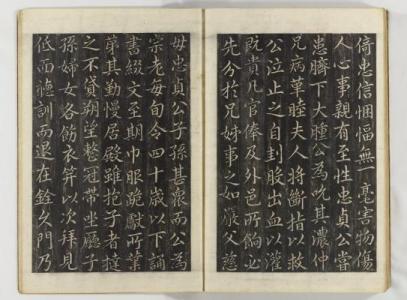 倚忠信悃愊無一毫害物傷
人心事親有至性忠貞公嘗
患臍下大腫公為吮其膿仲
兄病革睦夫人將斷指以救
公泣止之自刲股出血以灌
既貴凡官俸及外邑所餉必
先分於兄姊事之如嚴父慈
母忠貞公子孫甚衆而公為
宗老每旬令四十歲以下誦
書綴文至期巾服 獻所業
第其勤慢居殿雖抱子者撻
之不貸朔望整冠帶坐廳子
孫婦女各飭衣笄以次拜見
低而聽訓而退在銓久門乃